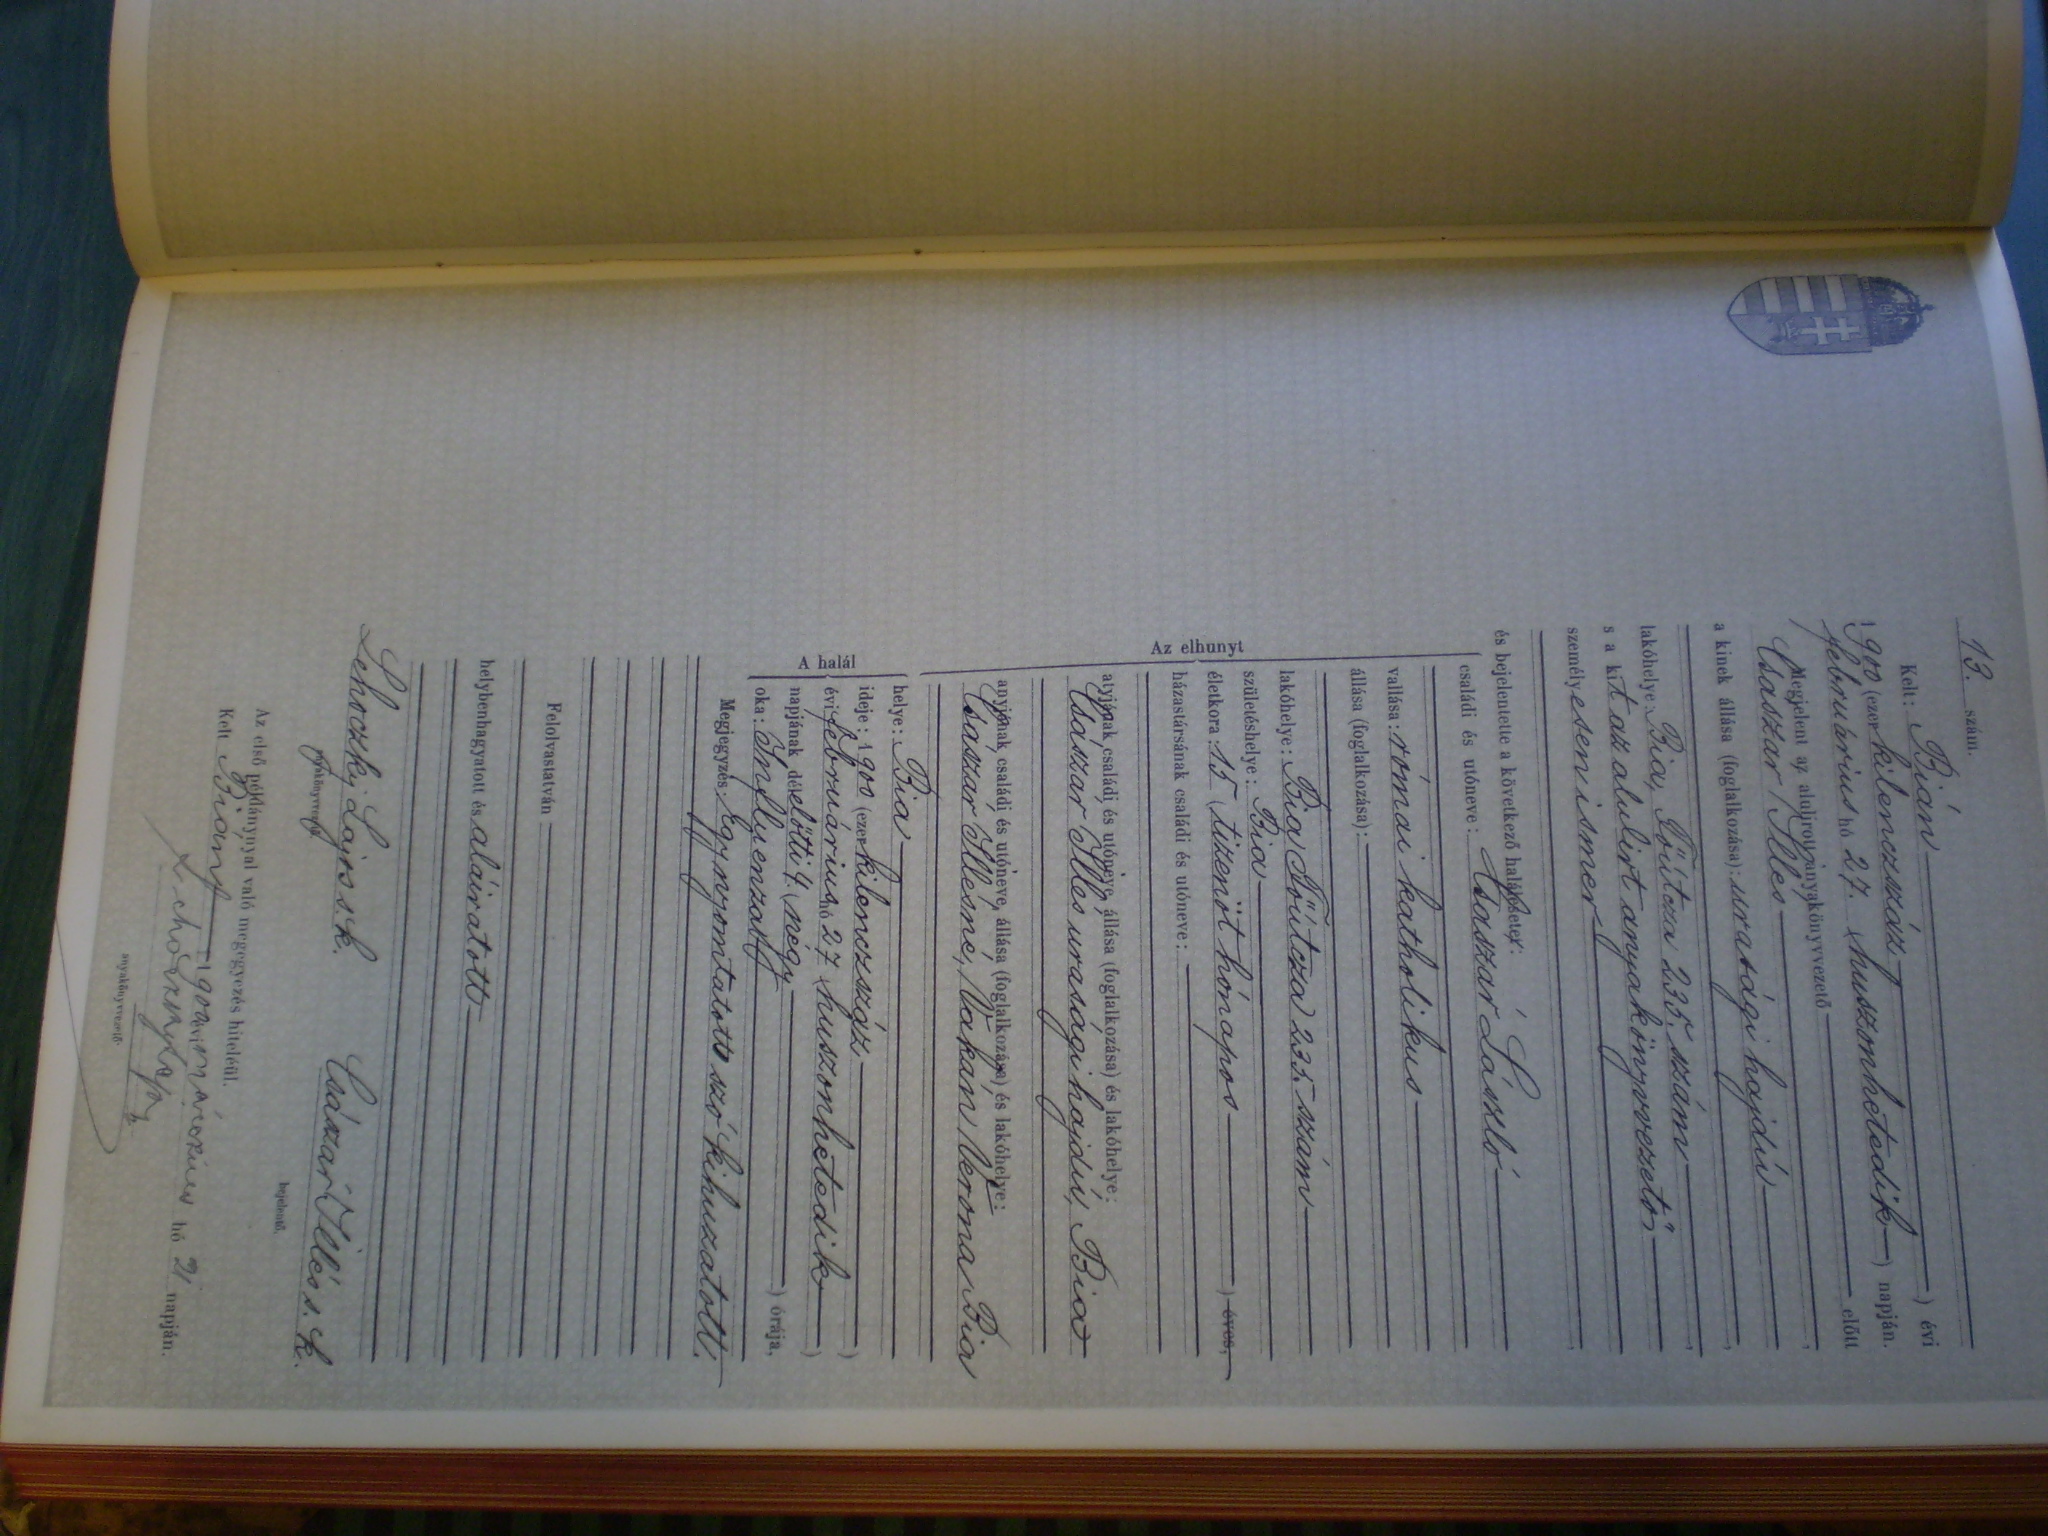 13. szám.
Kelt: Bián
1900 (ezerkilenczszáz) évi
februárius hó 27. (huszonhetedik) napján.
Megjelent az alulirott anyakönyvvezető előtt
Csaszar Illes,
a kinek állása (foglalkozása): urasági hajdú,
lakóhelye: Bia, Fő útcza 235. szám,
s a kit az alulirt anyakönyvvezető
személyesen ismer,
és bejelentette a következő halálesetet:
családi és utóneve: Csaszar László
állása (foglalkozása):
vallása: római katholikus
lakóhelye: Bia Fő útcza 235. szám
születéshelye: Bia
életkora: 15 (tizenöt hónapos) éves,
házastársának családi és utóneve:
Az elhunyt
atyjának családi és utóneve, állása (foglalkozása) és lakóhelye:
Császar Illes urasági hajdú, Bia
anyjának családi és utóneve, állása (foglalkozása) és lakóhelye:
Csaszar Illesné, Vakan Verona Bia
A halál
helye: Bia
ideje: 1900 (ezerkilenczszáz)
évi februárius hó 27 (huszonhetedik)
napjának délelőtti 4. (négy) órája,
oka: Influenza
Megjegyzés: Egy nyomtatott szó kihuzatott.
Felolvastatván
helybenhagyatott és aláiratott
Lehoczky Lajos s. k. Császár Illés s. k.
anyakönyvvezető bejelentő.
Az első példánynyal való megegyezés hiteléül.
Kelt Bián 1900 évi márczius hó 21 napján.
anyakönyvvezető